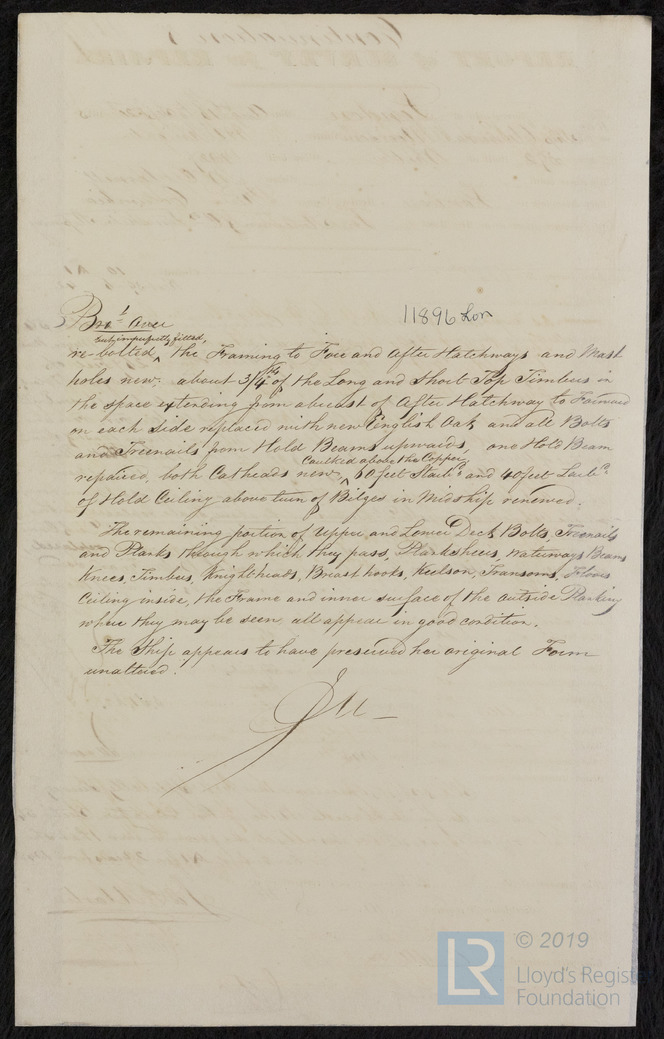 11896 Lon
Bro.t over
but imperfectly fitted,
re-bolted, the Framing to Fore and After Hatchways and Mast
holes new: about 3/4ths of the Long and Short Top Timbers in
the space extending from abreast of After Hatchway to Forward
on each side replaced with new English Oak and all Bolts
and Treenails from Hold Beams upwards, one Hold Beam
Caulked above the Copper,
repaired, both Catheads new, 60 feet Starb.d and 40 feet Larb.d
of Hold Ceiling above turn of Bilges in Midship renewed.
The remaining portion of Upper and Lower Deck Bolts, Treenails
and Planks through which they pass, Planksheers, waterways Beams
Knees, Timbers, Knightheads, Breasthooks, Keelson, Transoms, Floors
Ceiling inside, the Frame and inner surface of the outside Planking
where they may be seen all appear in good condition.
The Ship appears to have preserved her original Form
unaltered.
LR © 2019
Lloyd's Register
Foundation